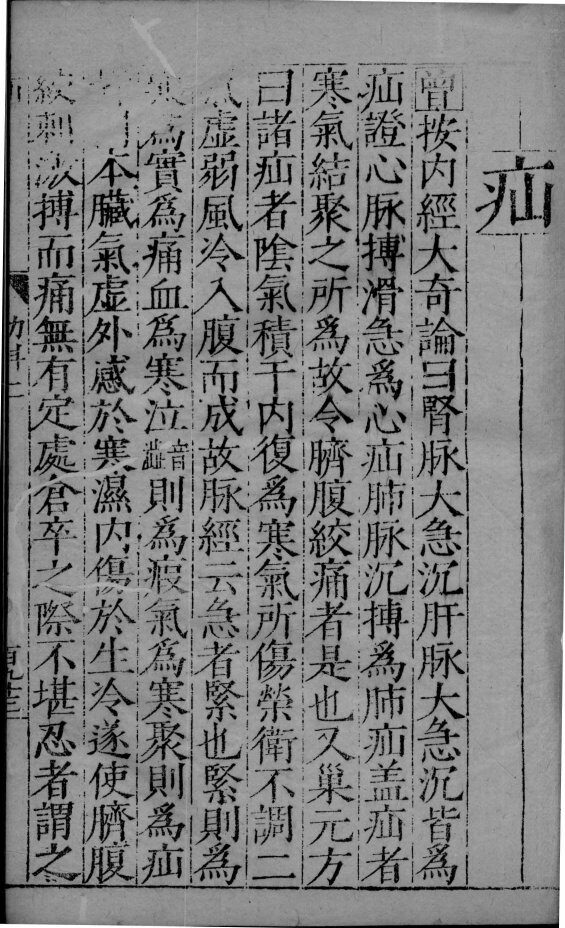 疝
曾按内經大奇論曰腎脉大急沉肝脉大急沉皆爲
疝證心脉搏滑急爲心疝肺脉沉搏爲肺疝盖疝者
寒氣結聚之所爲故令臍腹絞痛者是也又巢元方
曰諸疝者陰氣積于内復爲寒氣所傷榮衛不調二
氣虚弱風冷入腹而成故脉經云急者緊也緊則爲
寒爲實爲痛血爲寒泣音澁則爲瘕氣爲寒聚則爲疝
本臟氣虚外感於寒濕内傷於生冷遂使臍腹
絞刺激搏而痛無有定處倉卒之際不堪忍者謂之
幼科二